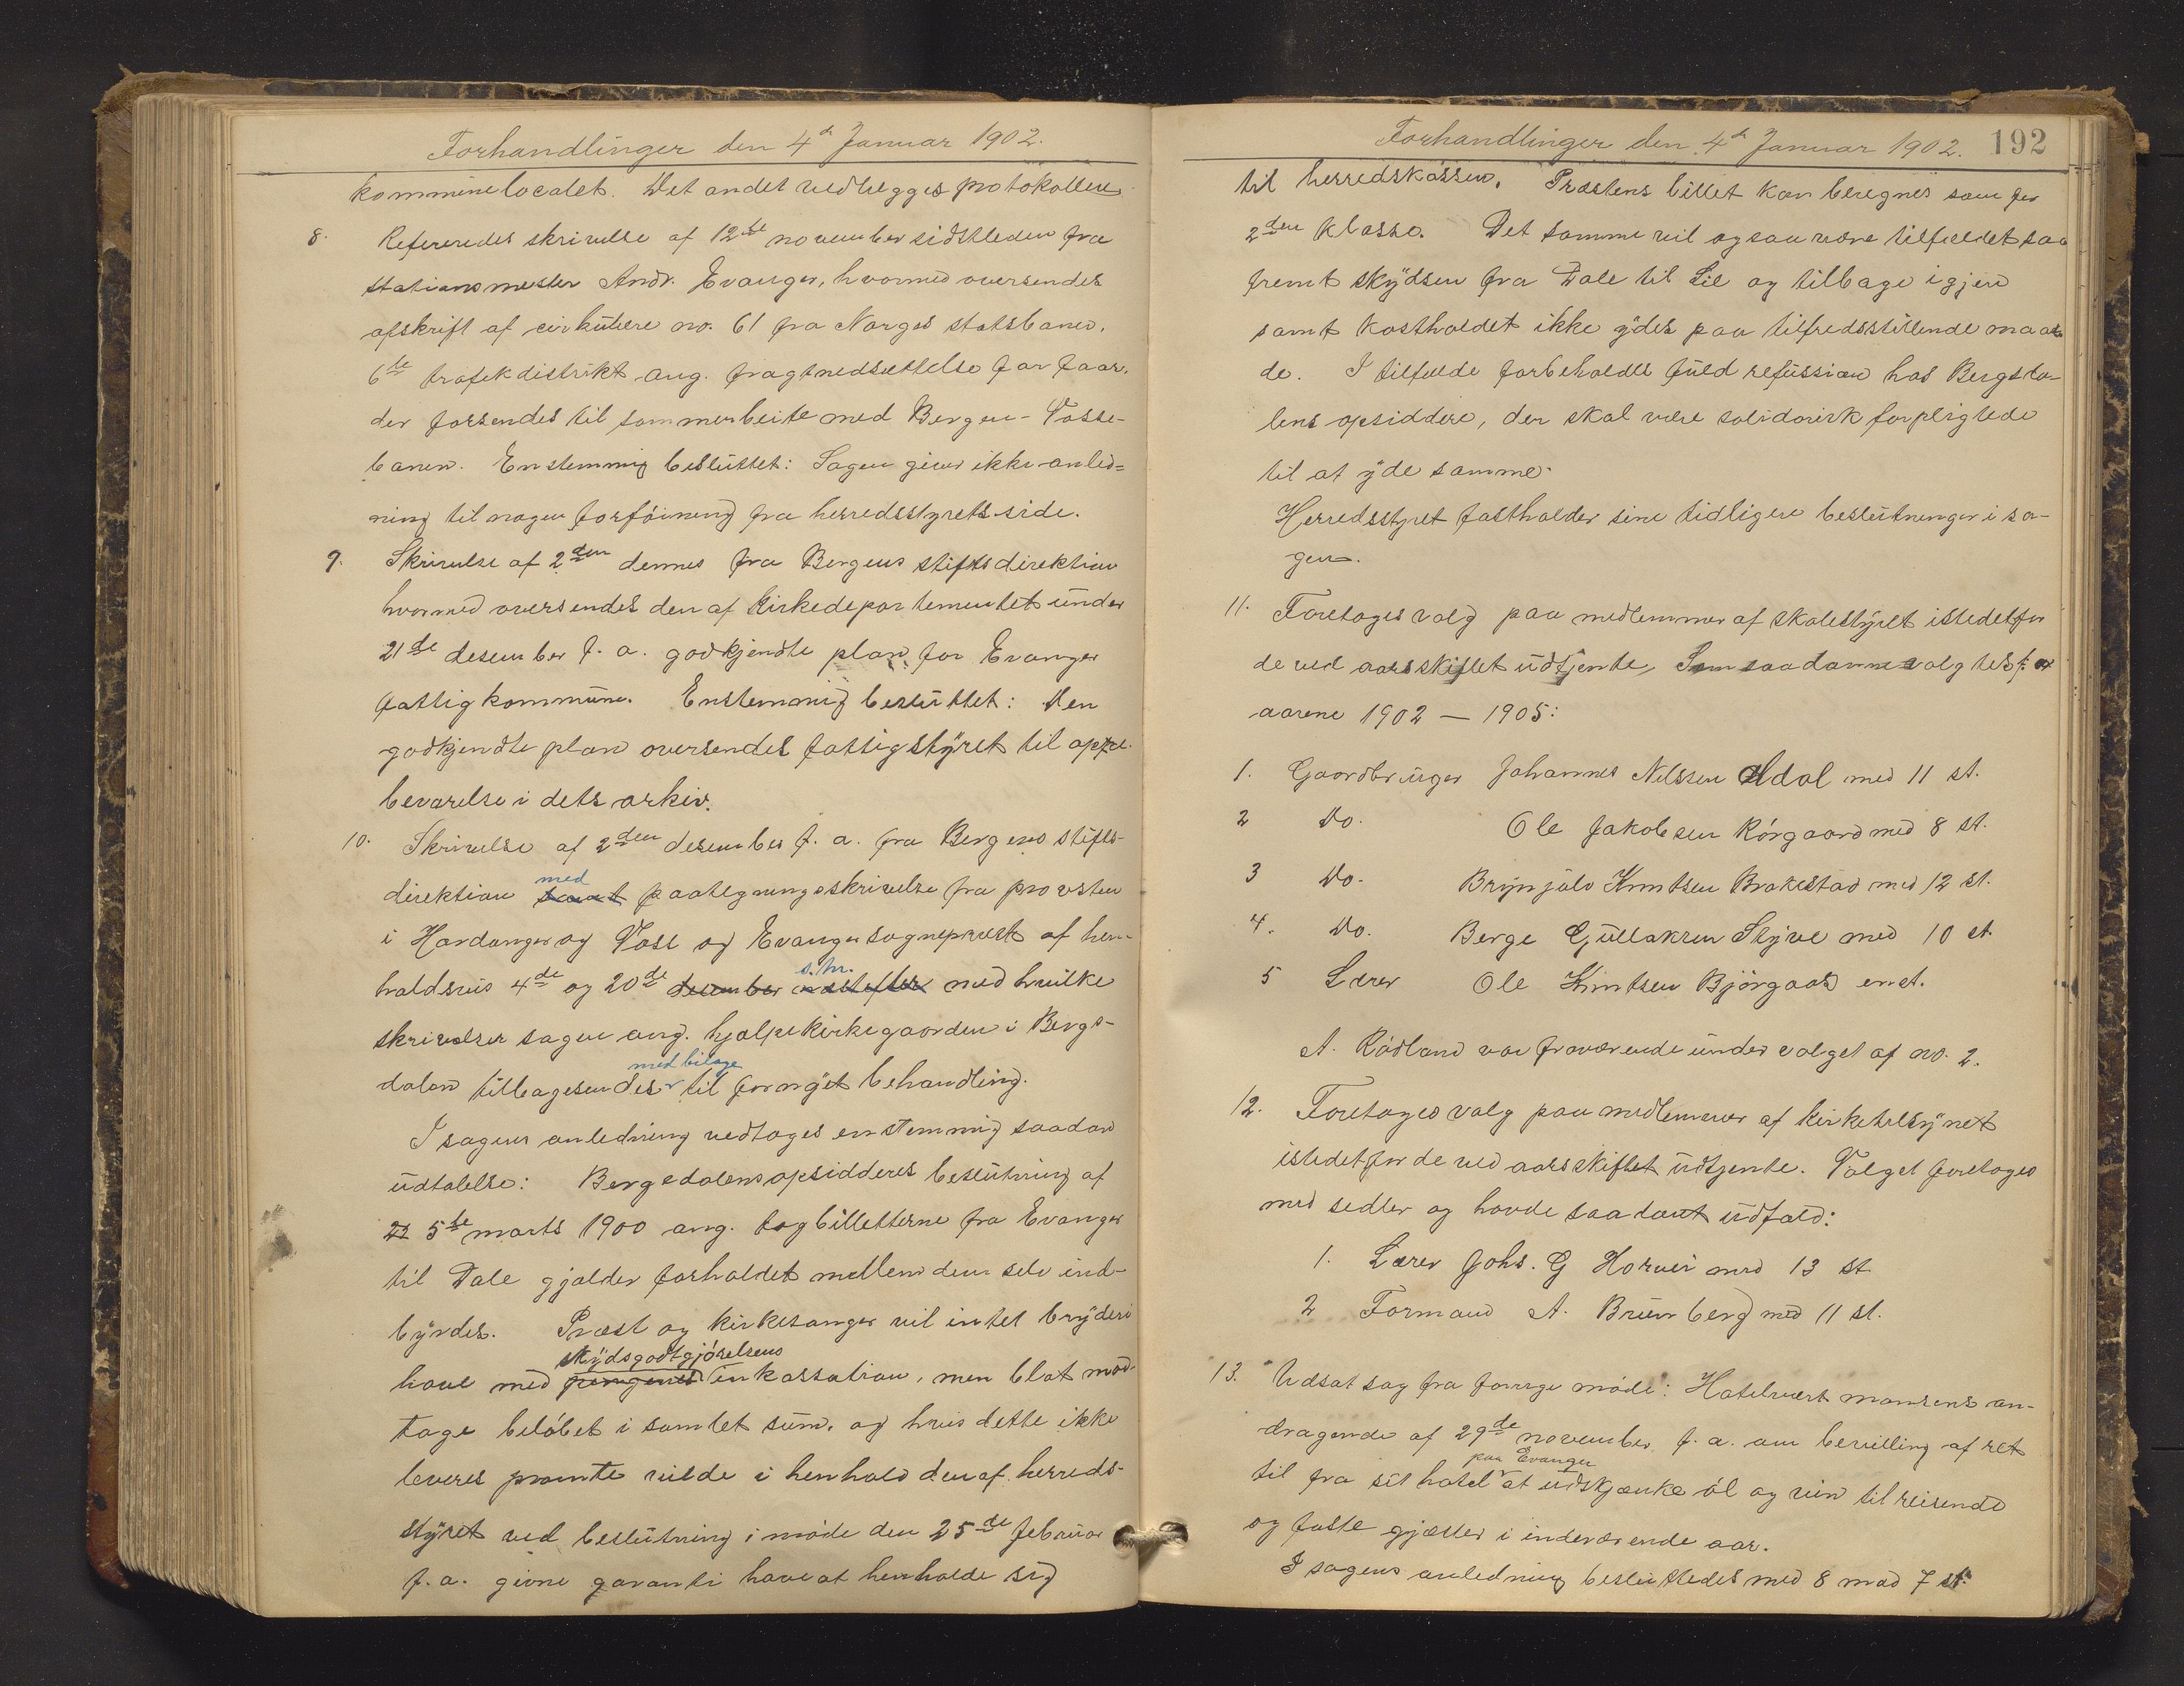 Forhandlinger den 4de Januar 1902.
kommunelocalet. Det andet vedlægges protokollen.
8. Refereredes skrivelse af 12te november sidstleden fra
stationsmester Andr. Evanger, hvormed oversendes
afskrift af cirkulære no. 61 fra Norges statsbaner,
6te trafikdistrikt ang. fragtnedsættelse for faar,
der forsendes til sommerbeite med Bergen-Vosse-
banen. Enstemmig besluttet: Sagen giver ikke anled=
ning til nogen forføining fra herredsstyrets side.
9. Skrivelse af 2den dennes fra Bergens stiftsdirektion
hvormed oversendes den af kirkedepartementet under
21de desember f. a. godkjendte plan for Evanger
fattigkommune. Enstemmig besluttet: Den
godkjendte plan oversendes fattigstyret til op
bevarelse i dets arkiv.
10. Skrivelse af 2den desember f. a. fra Bergens stifts-
direktion samt med paategningsskrivelse fra provsten
i Hardanger og Voss og Evanger sogneprest af hen-
holdsvis 4de og 20de desember næstefter s. m. med hvilke
skrivelser sagen ang. hjælpekirkegaarden i Bergs-
dalen tilbagesendes med bilage til fornyet behandling.
I sagens anledning vedtages enstemmig saadan
udtalelse: Bergsdalens opsidderes beslutning af
5te marts 1900 ang. togbilletterne fra Evanger
til Dale gjælder forholdet mellem dem selv ind-
byrdes. Præst og kirkesanger vil intet bryderi
have med pengenes skydsgodtgjørelsens inkassation, men blot mod-
tage beløbet i samlet sum, og hvis dette ikke
leveres promte vilde i henhold den af herreds-
styret ved beslutning i møde den 25de februar
f. a. givne garanti have at henholde sig
Forhandlinger den 4de Januar 1902. 192
til herredskassen. Præstens billet kan beregnes som for
2den klasse. Det samme vil ogsaa være tilfældet saa
fremt skydsen fra Dale til Lie og tilbage igjen
samt kostholdet ikke ydes paa tilfredsstillende maa
de. I tilfælde forbeholdes fuld refussion hos Bergsda-
lens opsiddere, der skal være solidarisk forpligtede
til at yde samme.
Herredsstyret fastholder sine tidligere beslutninger i sa-
gen.
11. Foretoges valg paa medlemmer af skolestyret istedetfor
de ved aarsskiftet udtjente. Som saadanne valgtes for
aarene 1902 — 1905:
1. Gaardbruger Johannes Nilssen Aldal med 11 st.
2 Do. Ole Jakobsen Rørgaard med 8 st.
3 Do. Brynjulv Knutsen Brakestad med 12 st.
4. Do. Berge Gullaksen Styve med 10 st.
5 Lærer Ole Knutsen Bjørgaas enst.
A. Rødland var fraværende under valget af no. 2.
12. Foretoges valg paa medlemmer af kirketilsynet
istedetfor de ved aarsskiftet udtjente. Valget foretoges
med sedler og havde saadant udfald:
1. Lærer Johs. G Horvei med 13 st
2 Formand A. Brunberg med 11 st.
13. Udsat sag fra forrige møde: Hotelvært Monsens an-
dragende af 29de november f. a. om bevilling af ret
til fra sit hotel paa Evanger at udskjænke øl og vin til reisende
og faste gjæster i indeværende aar.
I sagens anledning besluttedes med 8 mod 7 st: